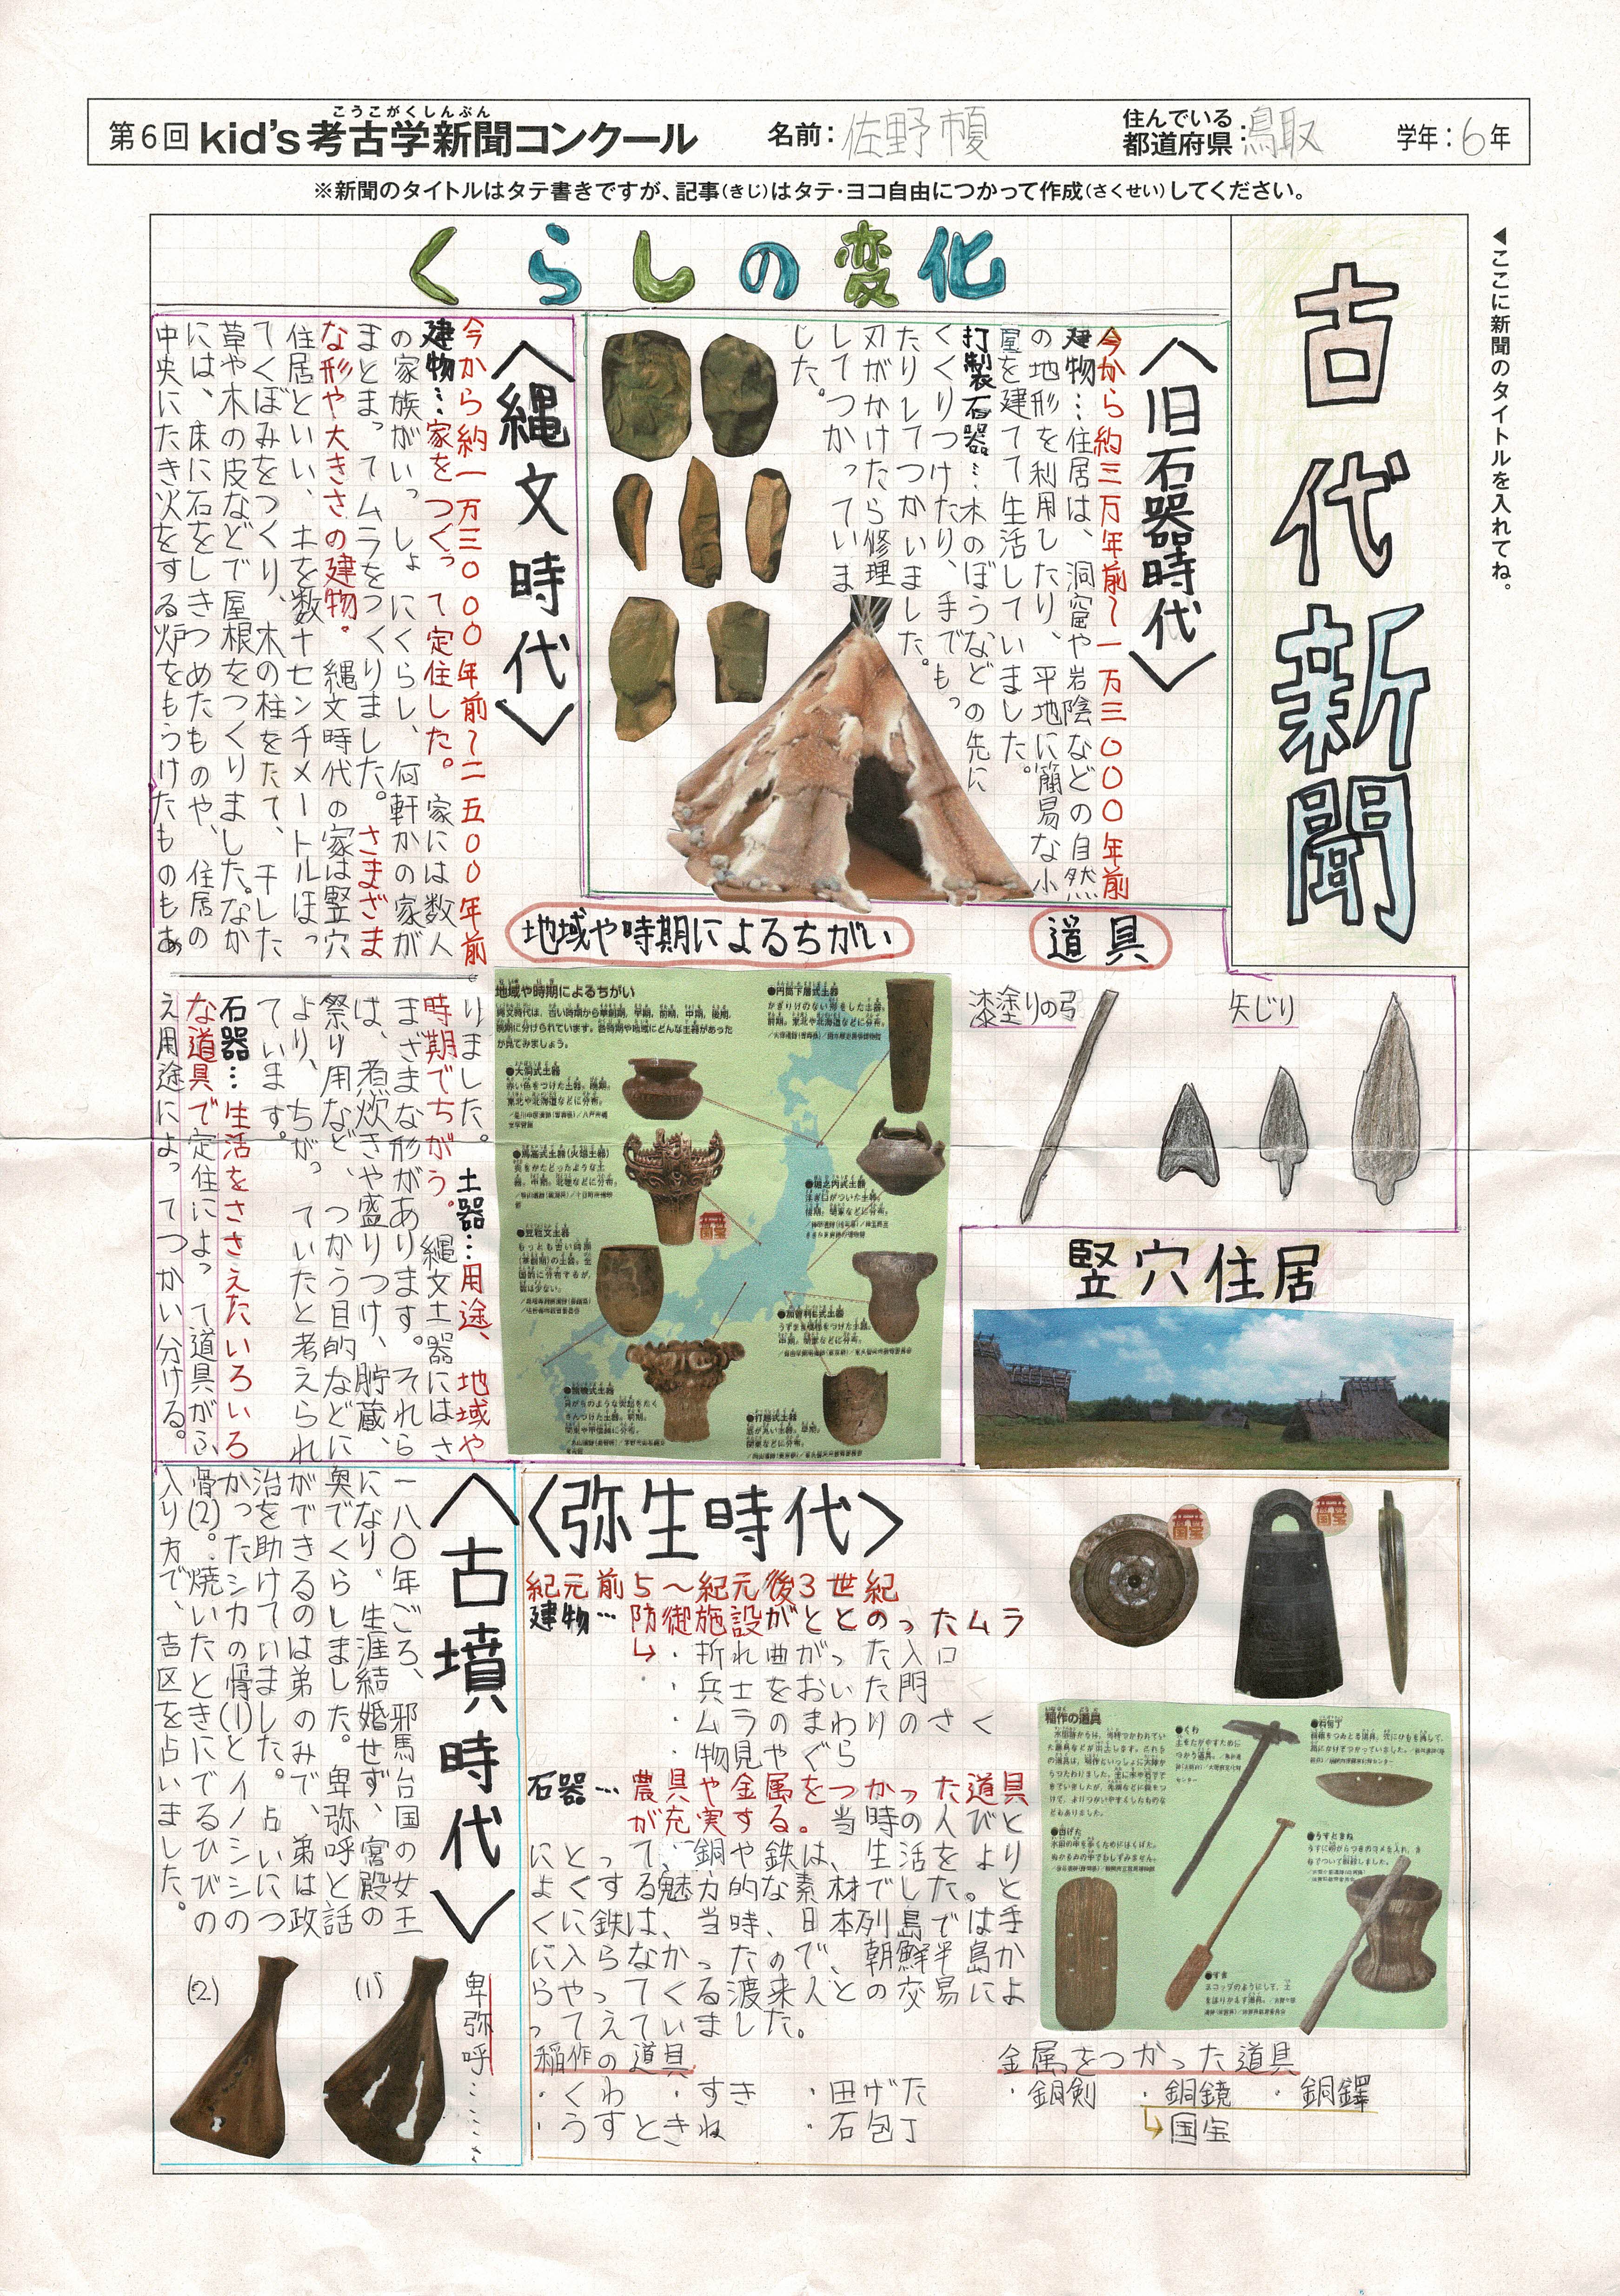 こうこがくしんぶん
第6回 kid's考古学新聞コンクール
名前:佐野榎
住んでいる
都道府県:鳥取
学年:6年
※新聞のタイトルはタテ書きですが、記事(きじ)はタテ・ヨコ自由につかって作成(さくせい)してください。
◀ここに新聞のタイトルを入れてね。
古代新聞
くらしの変化
〈旧石器時代〉
今から約三万年前~一万三〇〇〇年前
建物…住居は、洞窟や岩陰などの自然
の地形を利用したり、平地に簡易な小
屋を建てて生活していました。
打製石器…木のぼうなどの先に
くくりつけたり、手でもっ
たりしてつかいました。
刃がかけたら修理
してつかっていま
した。
〈縄文時代〉
今から約一万三〇〇〇年前~二五〇〇年前
建物…家をつくって定住した。家には数人
の家族がいっしょにくらし、何軒かの家が
まとまってムラをつくりました。さまざま
な形や大きさの建物。縄文時代の家は竪穴
住居といい、土を数十センチメートルほっ
てくぼみをつくり、木の柱をたて、干した
草や木の皮などで屋根をつくりました。なか
には、床に石をしきつめたものや、住居の
中央にたき火をする炉をもうけたものもあ
りました。土器…用途、地域や
時期でちがう。縄文土器にはさ
まざまな形があります。それら
は、煮炊きや盛りつけ、貯蔵、
祭り用など、つかう目的などに
より、ちがっていたと考えられ
ています。
石器…生活をささえたいろいろ
な道具で定住によって道具がふ
え用途によってつかい分ける。
地域や時期によるちがい
道具
漆塗りの弓
矢じり
地域や時期によるちがい
縄文時代は、古い時期から草創期、早期、前期、中期、後期、
晩期に分けられています。各時期や地域にどんな土器があった
か見てみましょう。
●円筒下層式土器
●大洞式土器
●馬高式土器(火焔土器)
●堀之内式土器
●豆粒文土器
●加曽利E式土器
●打越式土器
国宝
竪穴住居
〈弥生時代〉
紀元前5~紀元後3世紀
建物…防御施設がととのったムラ
↳・折れ曲がった入口
・兵士をおいたり門
・ムラのまわりのさく
・物見やぐら
石器…農具や金属をつかった道具
が充実する。当時の人びと
にとって、銅や鉄は、生活をより
よくする魅力的な素材でした。と
くに鉄は、当時、日本列島では手
に入らなかったので、朝鮮半島か
らやってくる渡来人との交易によ
ってえていました。
稲作の道具
・くわ ・すき ・田げた
・うすときね ・石包丁
金属をつかった道具
・銅剣 ・銅鏡 ・銅鐸
↳国宝
国宝
国宝
稲作の道具
●くわ
土をたがやすために
つかう道具。
●石包丁
●田げた
●うすときね
●すき
〈古墳時代〉
一八〇年ごろ、邪馬台国の女王
になり、生涯結婚せず、宮殿の
奥でくらしました。卑弥呼と話
ができるのは弟のみで、弟は政
治を助けていました。占いにつ
かったシカの骨(1)とイノシシの
骨(2)。焼いたときにでるひびの
入り方で、吉凶を占いました。
卑弥呼……
(1)
(2)